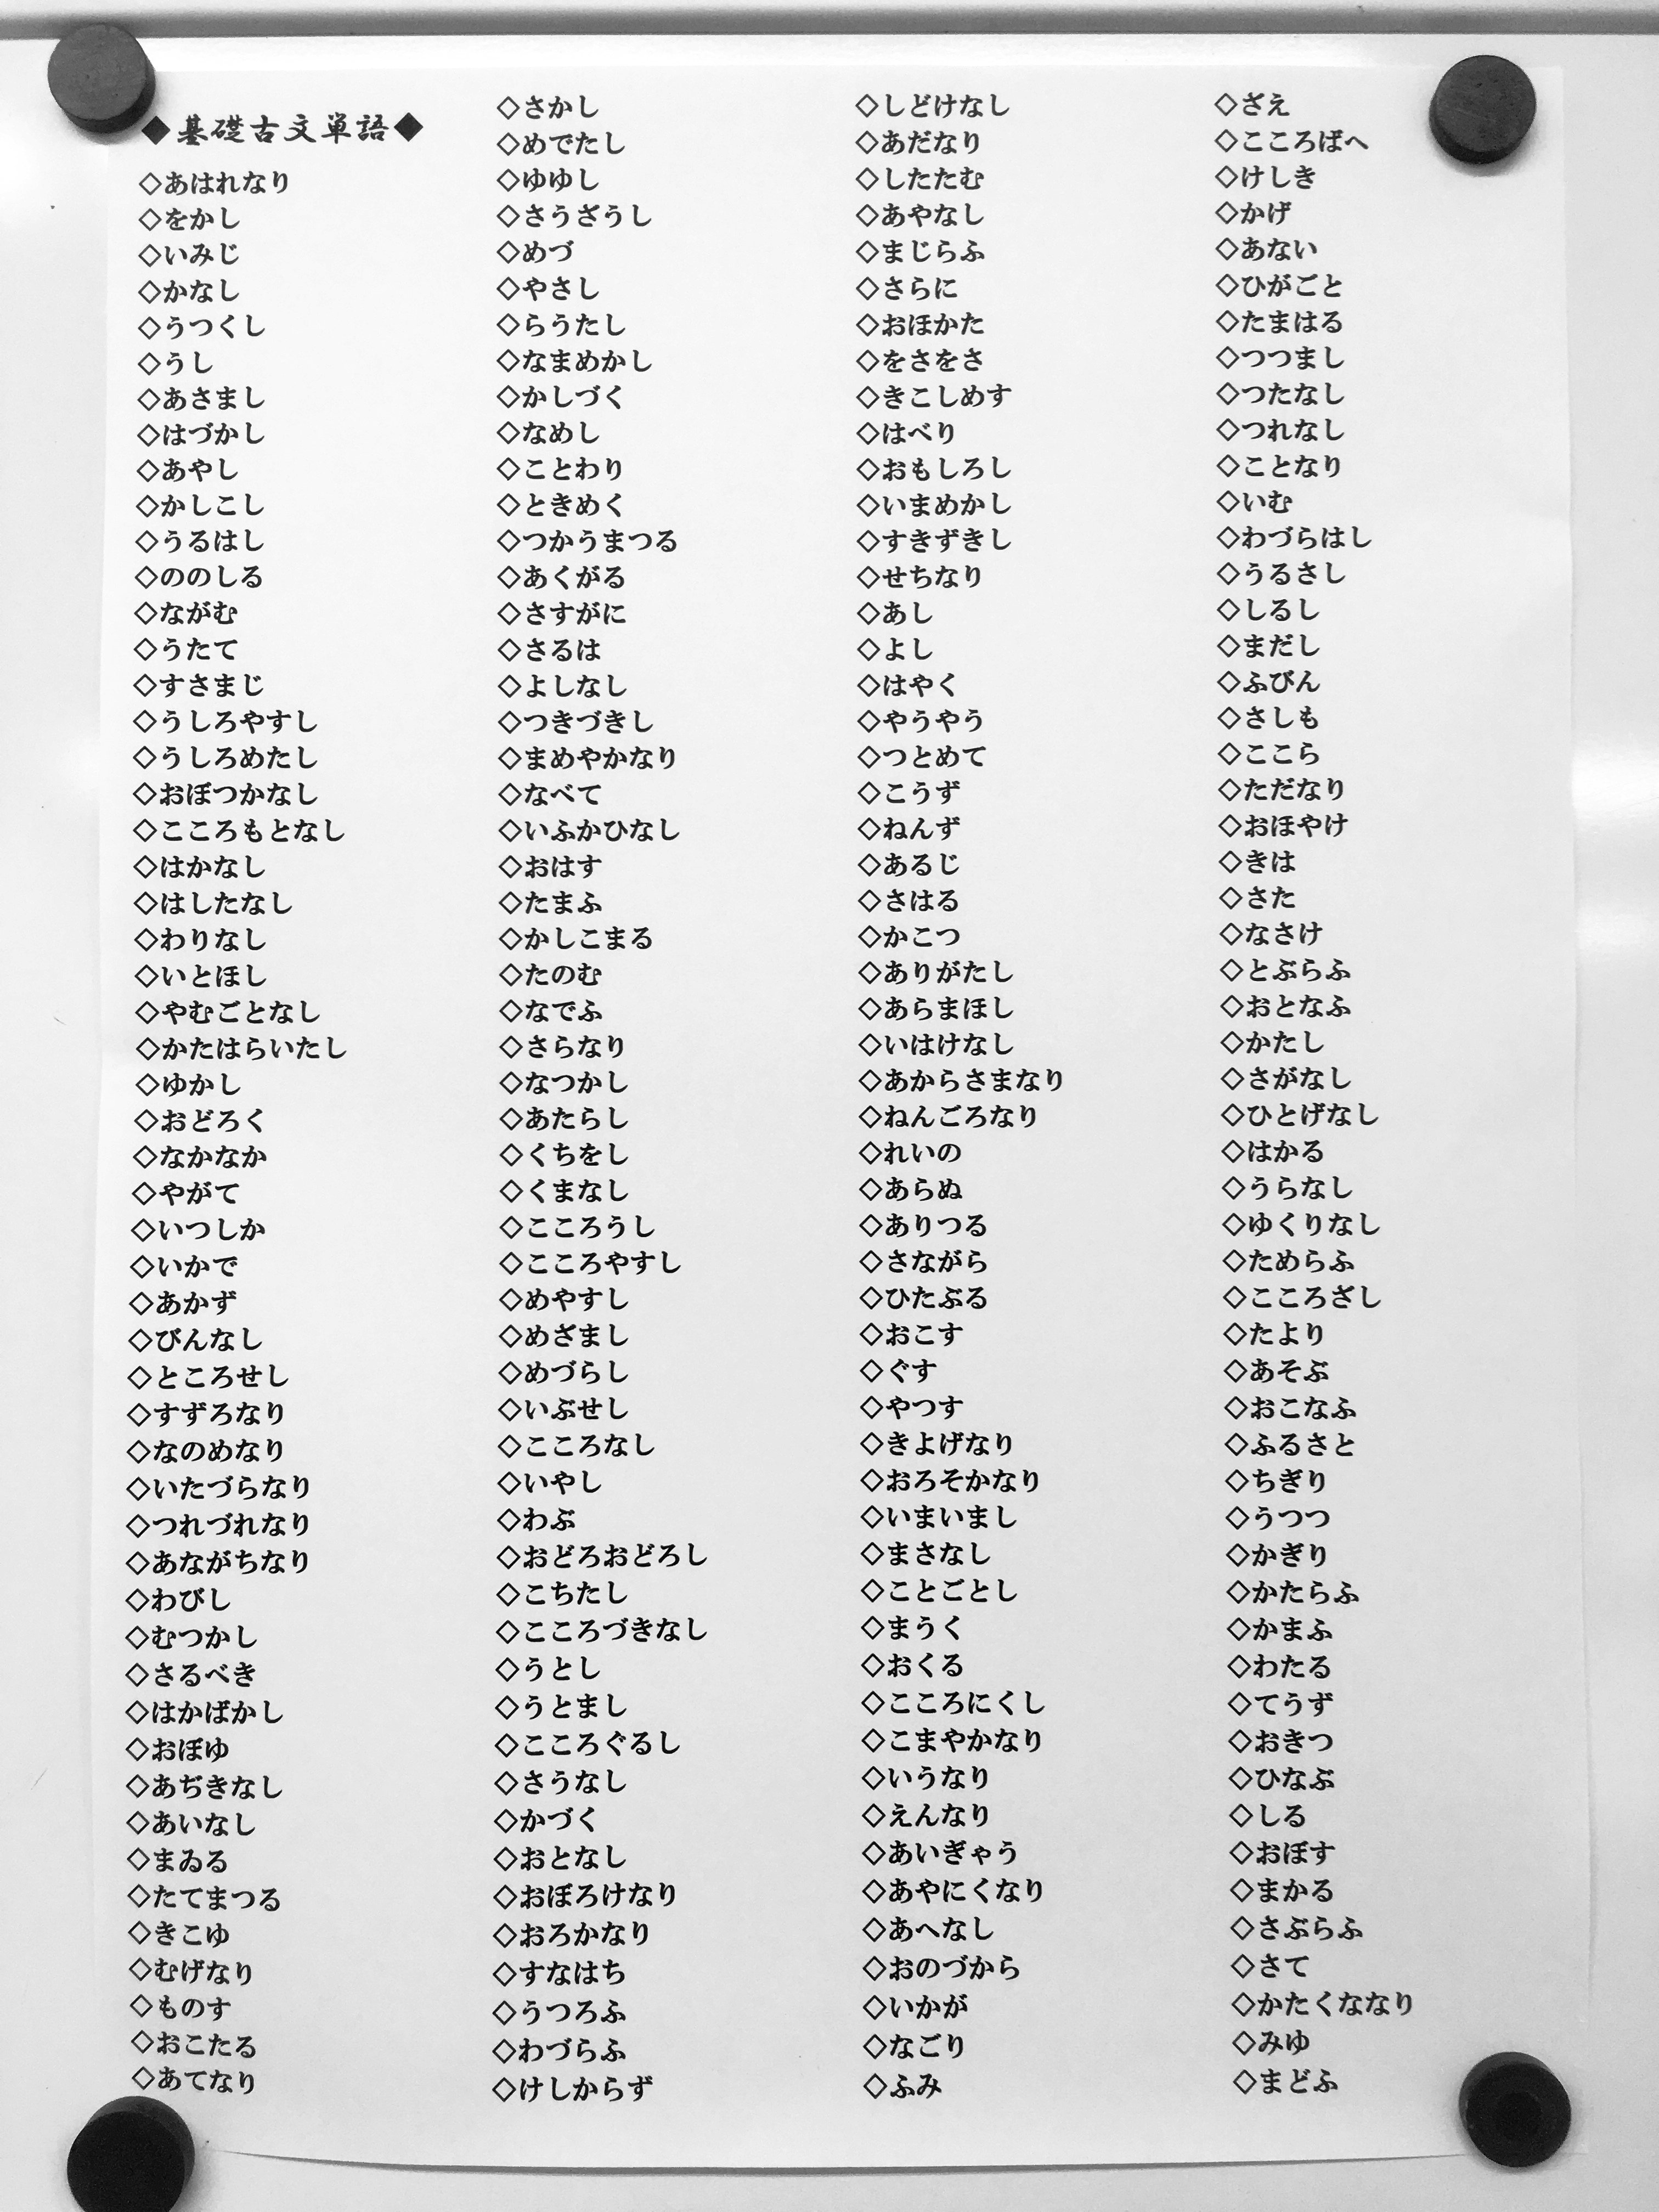 ◆基礎古文単語◆
◇あはれなり
◇をかし
◇いみじ
◇かなし
◇うつくし
◇うし
◇あさまし
◇はづかし
◇あやし
◇かしこし
◇うるはし
◇ののしる
◇ながむ
◇うたて
◇すさまじ
◇うしろやすし
◇うしろめたし
◇おぼつかなし
◇こころもとなし
◇はかなし
◇はしたなし
◇わりなし
◇いとほし
◇やむごとなし
◇かたはらいたし
◇ゆかし
◇おどろく
◇なかなか
◇やがて
◇いつしか
◇いかで
◇あかず
◇びんなし
◇ところせし
◇すずろなり
◇なのめなり
◇いたづらなり
◇つれづれなり
◇あながちなり
◇わびし
◇むつかし
◇さるべき
◇はかばかし
◇おぼゆ
◇あぢきなし
◇あいなし
◇まゐる
◇たてまつる
◇きこゆ
◇むげなり
◇ものす
◇おこたる
◇あてなり
◇さかし
◇めでたし
◇ゆゆし
◇さうざうし
◇めづ
◇やさし
◇らうたし
◇なまめかし
◇かしづく
◇なめし
◇ことわり
◇ときめく
◇つかうまつる
◇あくがる
◇さすがに
◇さるは
◇よしなし
◇つきづきし
◇まめやかなり
◇なべて
◇いふかひなし
◇おはす
◇たまふ
◇かしこまる
◇たのむ
◇なでふ
◇さらなり
◇なつかし
◇あたらし
◇くちをし
◇くまなし
◇こころうし
◇こころやすし
◇めやすし
◇めざまし
◇めづらし
◇いぶせし
◇こころなし
◇いやし
◇わぶ
◇おどろおどろし
◇こちたし
◇こころづきなし
◇うとし
◇うとまし
◇こころぐるし
◇さうなし
◇かづく
◇おとなし
◇おぼろけなり
◇おろかなり
◇すなはち
◇うつろふ
◇わづらふ
◇けしからず
◇しどけなし
◇あだなり
◇したたむ
◇あやなし
◇まじらふ
◇さらに
◇おほかた
◇をさをさ
◇きこしめす
◇はべり
◇おもしろし
◇いまめかし
◇すきずきし
◇せちなり
◇あし
◇よし
◇はやく
◇やうやう
◇つとめて
◇こうず
◇ねんず
◇あるじ
◇さはる
◇かこつ
◇ありがたし
◇あらまほし
◇いはけなし
◇あからさまなり
◇ねんごろなり
◇れいの
◇あらぬ
◇ありつる
◇さながら
◇ひたぶる
◇おこす
◇ぐす
◇やつす
◇きよげなり
◇おろそかなり
◇いまいまし
◇まさなし
◇ことごとし
◇まうく
◇おくる
◇こころにくし
◇こまやかなり
◇いうなり
◇えんなり
◇あいぎゃう
◇あやにくなり
◇あへなし
◇おのづから
◇いかが
◇なごり
◇ふみ
◇ざえ
◇こころばへ
◇けしき
◇かげ
◇あない
◇ひがごと
◇たまはる
◇つつまし
◇つたなし
◇つれなし
◇ことなり
◇いむ
◇わづらはし
◇うるさし
◇しるし
◇まだし
◇ふびん
◇さしも
◇ここら
◇ただなり
◇おほやけ
◇きは
◇さた
◇なさけ
◇とぶらふ
◇おとなふ
◇かたし
◇さがなし
◇ひとげなし
◇はかる
◇うらなし
◇ゆくりなし
◇ためらふ
◇こころざし
◇たより
◇あそぶ
◇おこなふ
◇ふるさと
◇ちぎり
◇うつつ
◇かぎり
◇かたらふ
◇かまふ
◇わたる
◇てうず
◇おきつ
◇ひなぶ
◇しる
◇おぼす
◇まかる
◇さぶらふ
◇さて
◇かたくななり
◇みゆ
◇まどふ